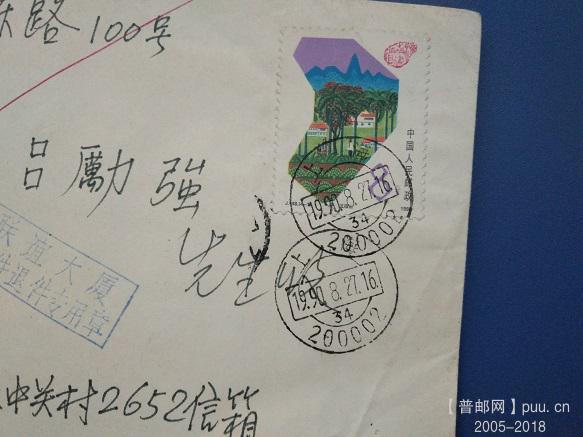 路100号
中国人民邮政
吕勵強
先生
上海
1990.8.27.16
34
200002
上海
1990.8.27.16
34
200002
联谊大厦
退件专用章
中关村2652信箱
【普邮网】puu.cn
2005-2018